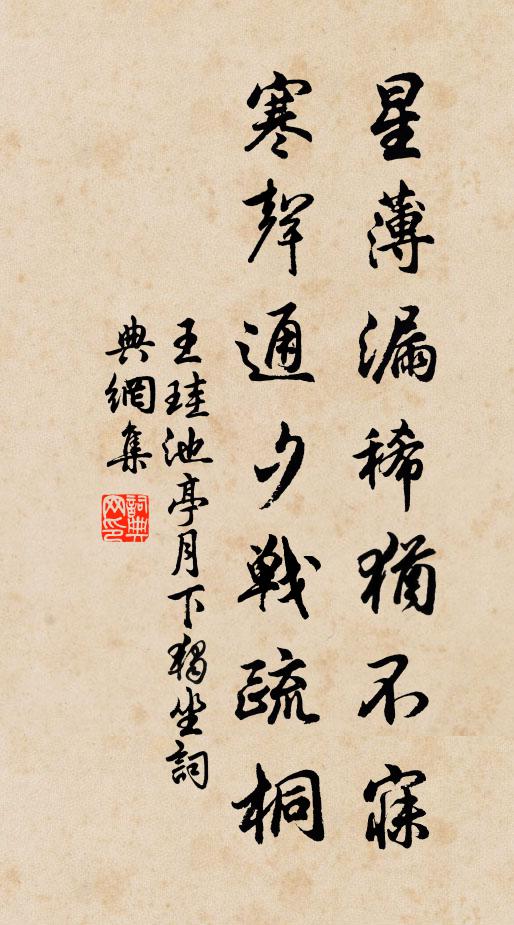 星薄漏稀猶不寐
寒聲通夕戰疏桐
王珪池亭月下獨坐詞
典網集
詞典網印